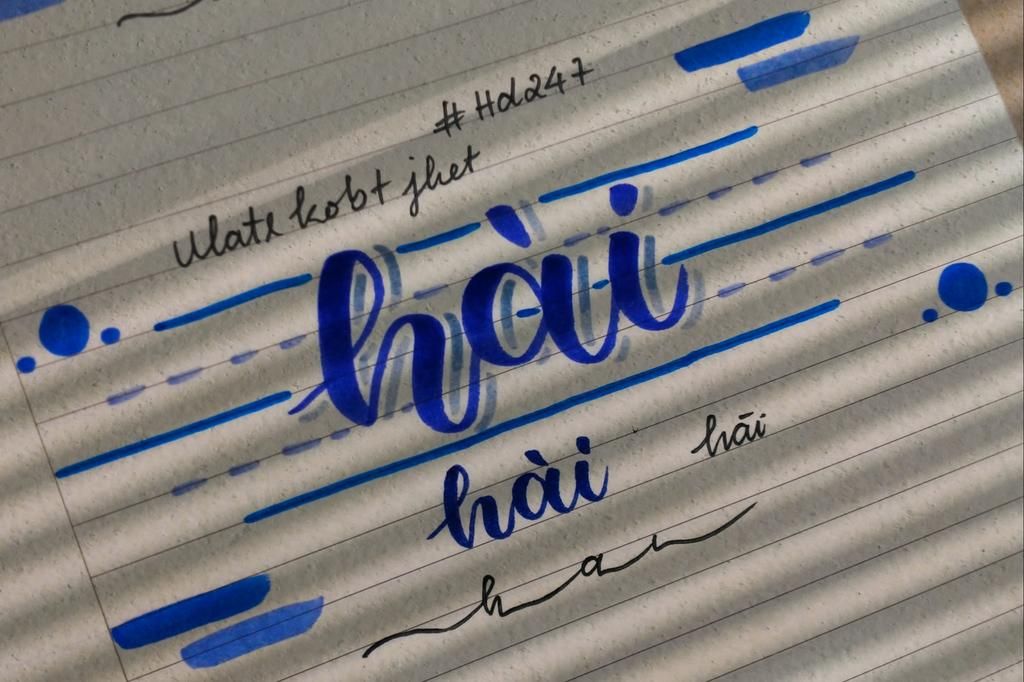 #Hd247
Ulate kobt jhet
hài
hài hãi
hai